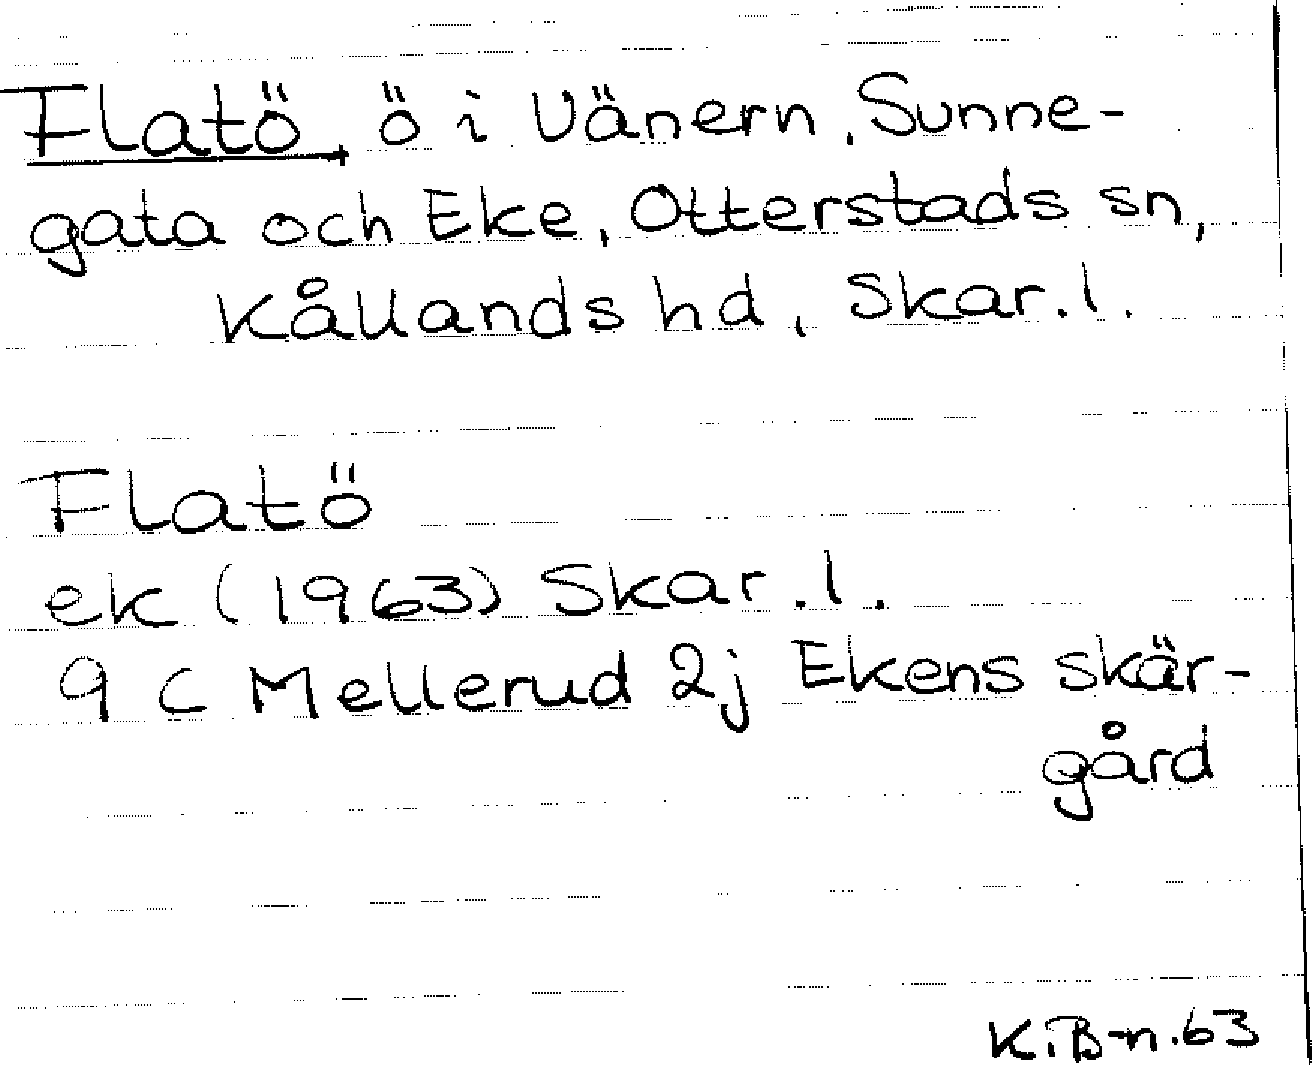 Flatö, ö i Vänern, Sunne-
gata och Eke, Otterstads sn,
Kållands hd, Skar.l.
Flatö
ek (1963) Skar.l.
9 C Mellerud 2j Ekens skär-
gård
K.B-n.63